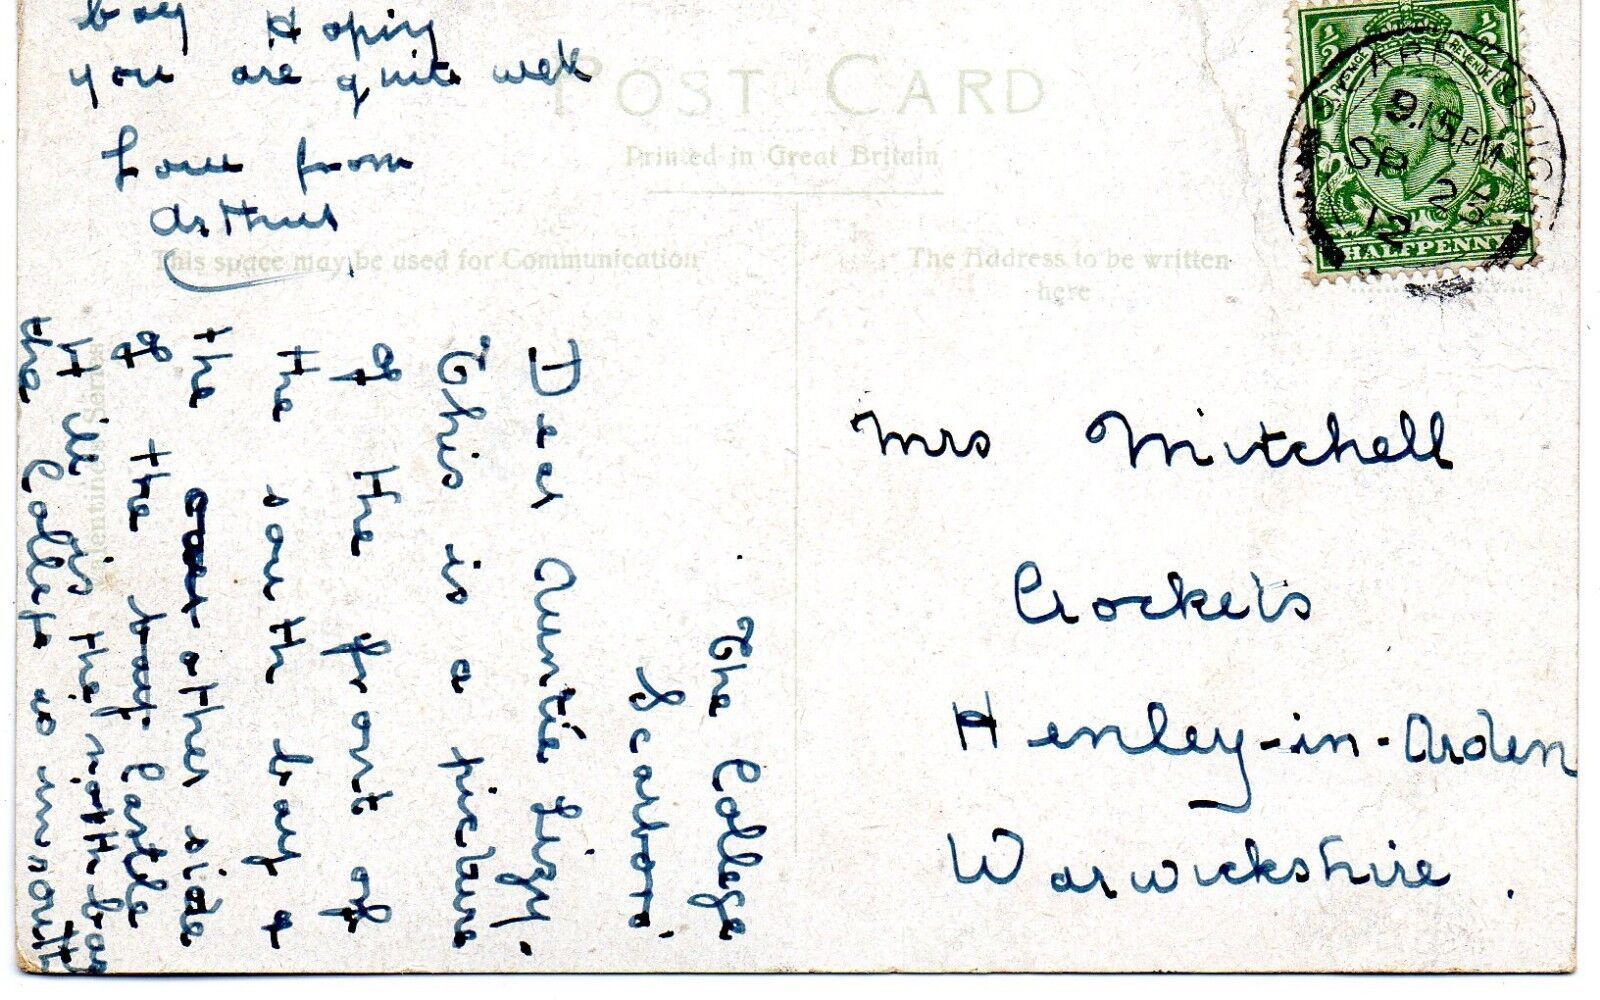 The College
Scarboro'
Dear Auntie Lizy.
This is a picture
of the front of
the south bay a
the other side
of the bay Castle
Hill is the north bay
the College is in south
bay Hoping
you are quite well
Love from
Arthur
POST CARD
Printed in Great Britain
This space may be used for Communication
The Address to be written
here
Mrs Mitchell
Crockets
Henley-in-Arden
Warwickshire.
1/2 1/2
POSTAGE REVENUE
HALFPENNY
9.15PM
SP 25
12
Series